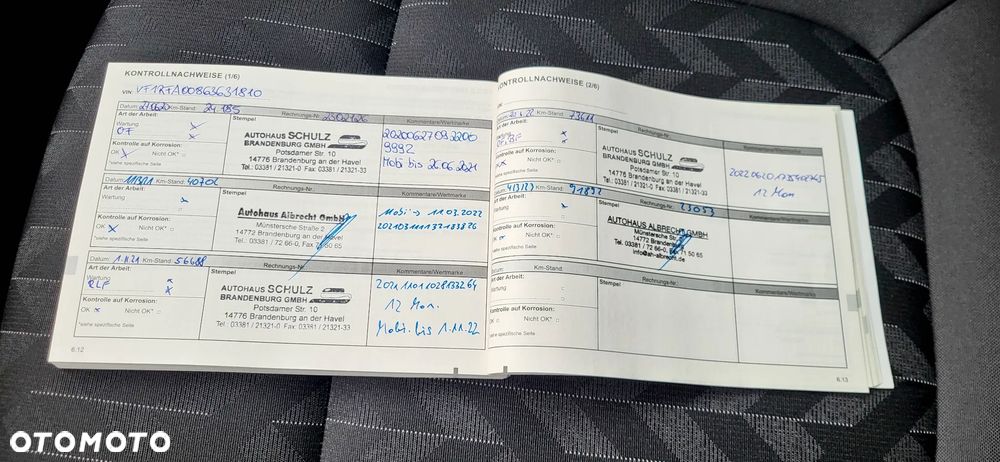 KONTROLLNACHWEISE (1/6)
VIN: VF1RFA00863631810
Datum: 27.06.20 Km-Stand: 24 185
Rechnungs-Nr.:
Kommentare/Wertmarke
Art der Arbeit:
Wartung
OF
Kontrolle auf Korrosion:
OK Nicht OK*
*siehe spezifische Seite
Stempel
AUTOHAUS SCHULZ
BRANDENBURG GMBH
Potsdamer Str. 10
14776 Brandenburg an der Havel
Tel.: 03381 / 21321-0 Fax: 03381 / 21321-33
20200627092200
9992
Mobi bis 26.06.2021
Km-Stand: 40702
Rechnungs-Nr.:
Kommentare/Wertmarke
Art der Arbeit:
Wartung
Kontrolle auf Korrosion:
OK Nicht OK*
*siehe spezifische Seite
Autohaus Albrecht GmbH
Münstersche Straße 2
14772 Brandenburg an der Havel
Tel.: 03381 / 72 66-0, Fax 71 50 65
Mobi → 11.03.2022
Datum: 1.11.21 Km-Stand: 56688
Rechnungs-Nr.:
Kommentare/Wertmarke
Art der Arbeit:
Wartung
Kontrolle auf Korrosion:
OK Nicht OK*
*siehe spezifische Seite
Stempel
AUTOHAUS SCHULZ
BRANDENBURG GMBH
Potsdamer Str. 10
14776 Brandenburg an der Havel
Tel.: 03381 / 21321-0 Fax: 03381 / 21321-33
12 Mon.
Mobi. bis 1.11.22
6.12
KONTROLLNACHWEISE (2/6)
Km-Stand: 73611
Rechnungs-Nr.:
Kommentare/Wertmarke
Art der Arbeit:
Wartung
Kontrolle auf Korrosion:
Nicht OK*
siehe spezifische Seite
Stempel
AUTOHAUS SCHULZ
BRANDENBURG GMBH
Potsdamer Str. 10
14776 Brandenburg an der Havel
Tel.: 03381 / 21321-0 Fax: 03381 / 21321-33
12 Mon
Km-Stand: 91892
Rechnungs-Nr.: 23053
Kommentare/Wertmarke
Art der Arbeit:
Wartung
Kontrolle auf Korrosion:
Nicht OK*
siehe spezifische Seite
AUTOHAUS ALBRECHT GMBH
Münstersche Str. 2
14772 Brandenburg
Tel. 03381 / 72 66-0, Fax 71 50 65
info@ah-albrecht.de
Datum: Km-Stand:
Rechnungs-Nr.:
Kommentare/Wertmarke
Art der Arbeit:
Wartung
Kontrolle auf Korrosion:
OK Nicht OK*
siehe spezifische Seite
Stempel
6.13
OTOMOTO